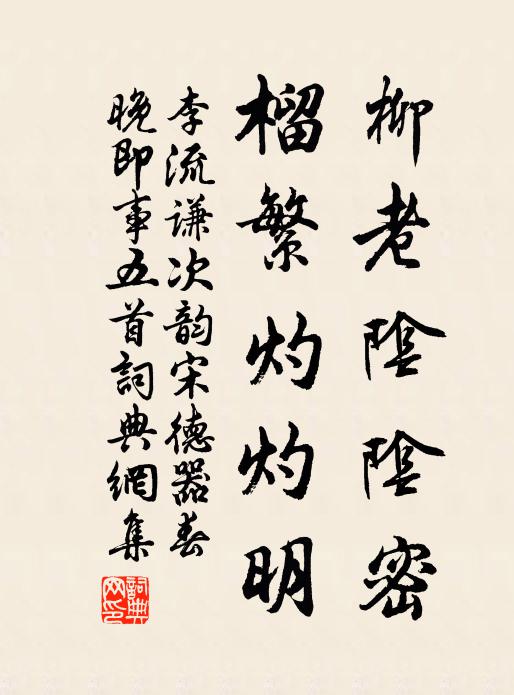 柳老陰陰密
榴繁灼灼明
李流謙次韵宋德器春
晚即事五首詞典網集
詞典
网印